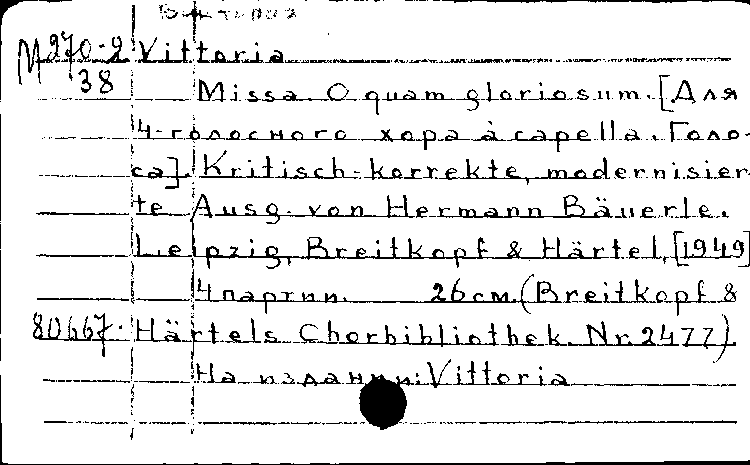 Виктория
М270-2 Vittoria
38 Missa. O quam gloriosum. [Для
4-голосного хора à capella. Голо-
са]. Kritisch-korrekte, modernisier-
te Ausg. von Hermann Bäuerle.
Leipzig, Breitkopf & Härtel, [1949]
4 партии. 26 см. (Breitkopf &
80667. Härtels Chorbibliothek. Nr. 2477).
На издании: Vittoria